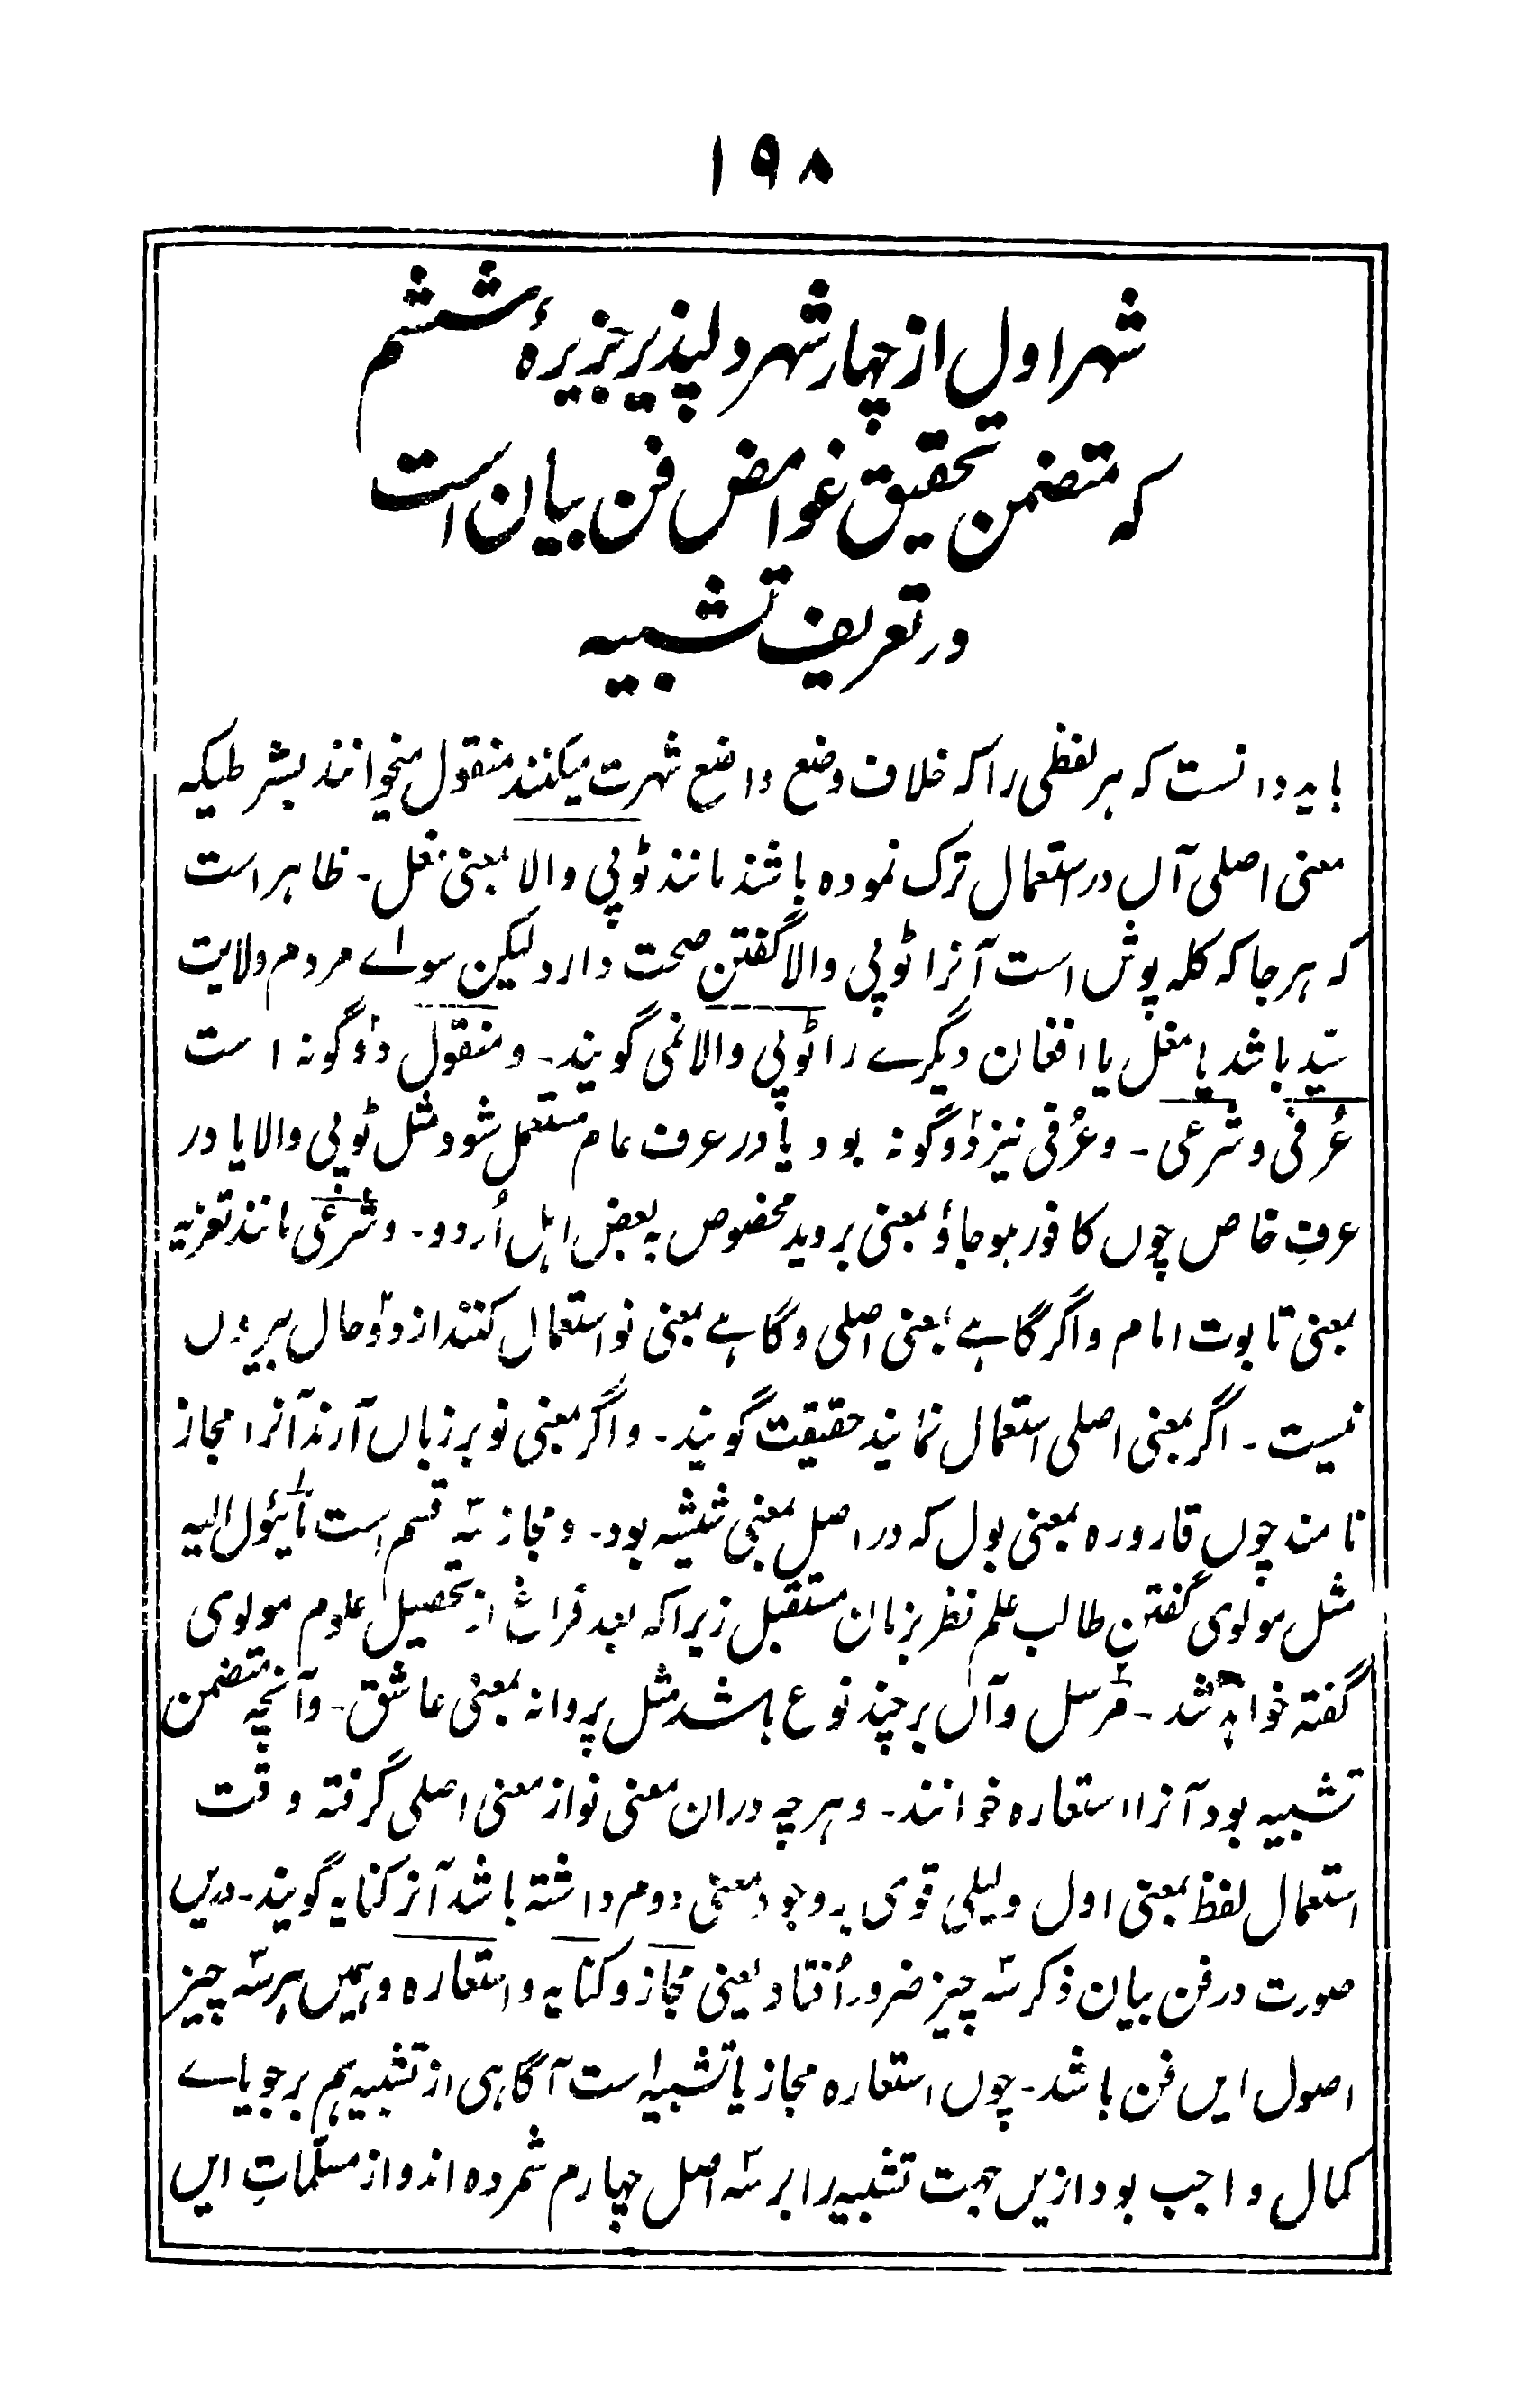 ۱۹۸
شہر اول از چہار شہر دلپذیر جزیرۂ ششم
کہ متضمن تحقیق غوامض فن بیان است
در تعریف تشبیہ
باید دانست کہ ہر لفظی را کہ خلاف وضع واضع شہرت میکنند منقول میخوانند بشرطیکہ
معنی اصلی آں در استعمال ترک نمودہ باشند مانند ٹوپی والا بمعنی مغل ۔ ظاہر است
کہ ہر جا کہ کلہ پوش است آنرا ٹوپی والا گفتن صحت دارد لیکن سواے مردم ولایت
سیّد باشد یا مغل یا افغان دیگرے را ٹوپی والا نمی گویند ۔ و منقول دوگونہ است
عُرفی و شرعی ۔ و عُرفی نیز دوگونہ بود یا در عرف عام مستعمل شود مثل ٹوپی والا یا در
عرفِ خاص چوں کافور ہوجاؤ بمعنی بروید مخصوص بہ بعض اہل اُردو ۔ و شرعی مانند تعزیہ
بمعنی تابوت امام و اگر گاہے بمعنی اصلی و گاہے بمعنی نو استعمال کنند از دو حال بیروں
نیست ۔ اگر بمعنی اصلی استعمال نمایند حقیقت گویند ۔ و اگر بمعنی نو بر زباں آرند آنرا مجاز
نامند چوں قارورہ بمعنی بول کہ در اصل بمعنی شیشہ بود ۔ و مجاز سہ قسم است مایئول الیہ
مثل مولوی گفتن طالب علم نظر بزمان مستقبل زیرا کہ بعد فراغ از تحصیل علوم مولوی
گفتہ خواہد شد ۔ مرسل و آں بر چند نوع باشد مثل پروانہ بمعنی عاشق ۔ و آنچہ متضمن
تشبیہ بود آنرا استعارہ خوانند ۔ و ہرچہ دران معنی نو از معنی اصلی گرفتہ وقت
استعمال لفظ بمعنی اول دلیلی قوی بہ وجود معنی دوم داشتہ باشد آنرا کنایہ گویند ۔ دریں
صورت در فن بیان ذکر سہ چیز ضرور اُفتاد یعنی مجاز و کنایہ و استعارہ و ہمیں ہر سہ چیز
اصول ایں فن باشد ۔ چوں استعارہ مجاز با تشبیہ است آگاہی از تشبیہ ہم بر جویاے
کمال واجب بود ازیں جہت تشبیہ را بر سہ اصل چہارم شمردہ اند و از مسلّماتِ ایں